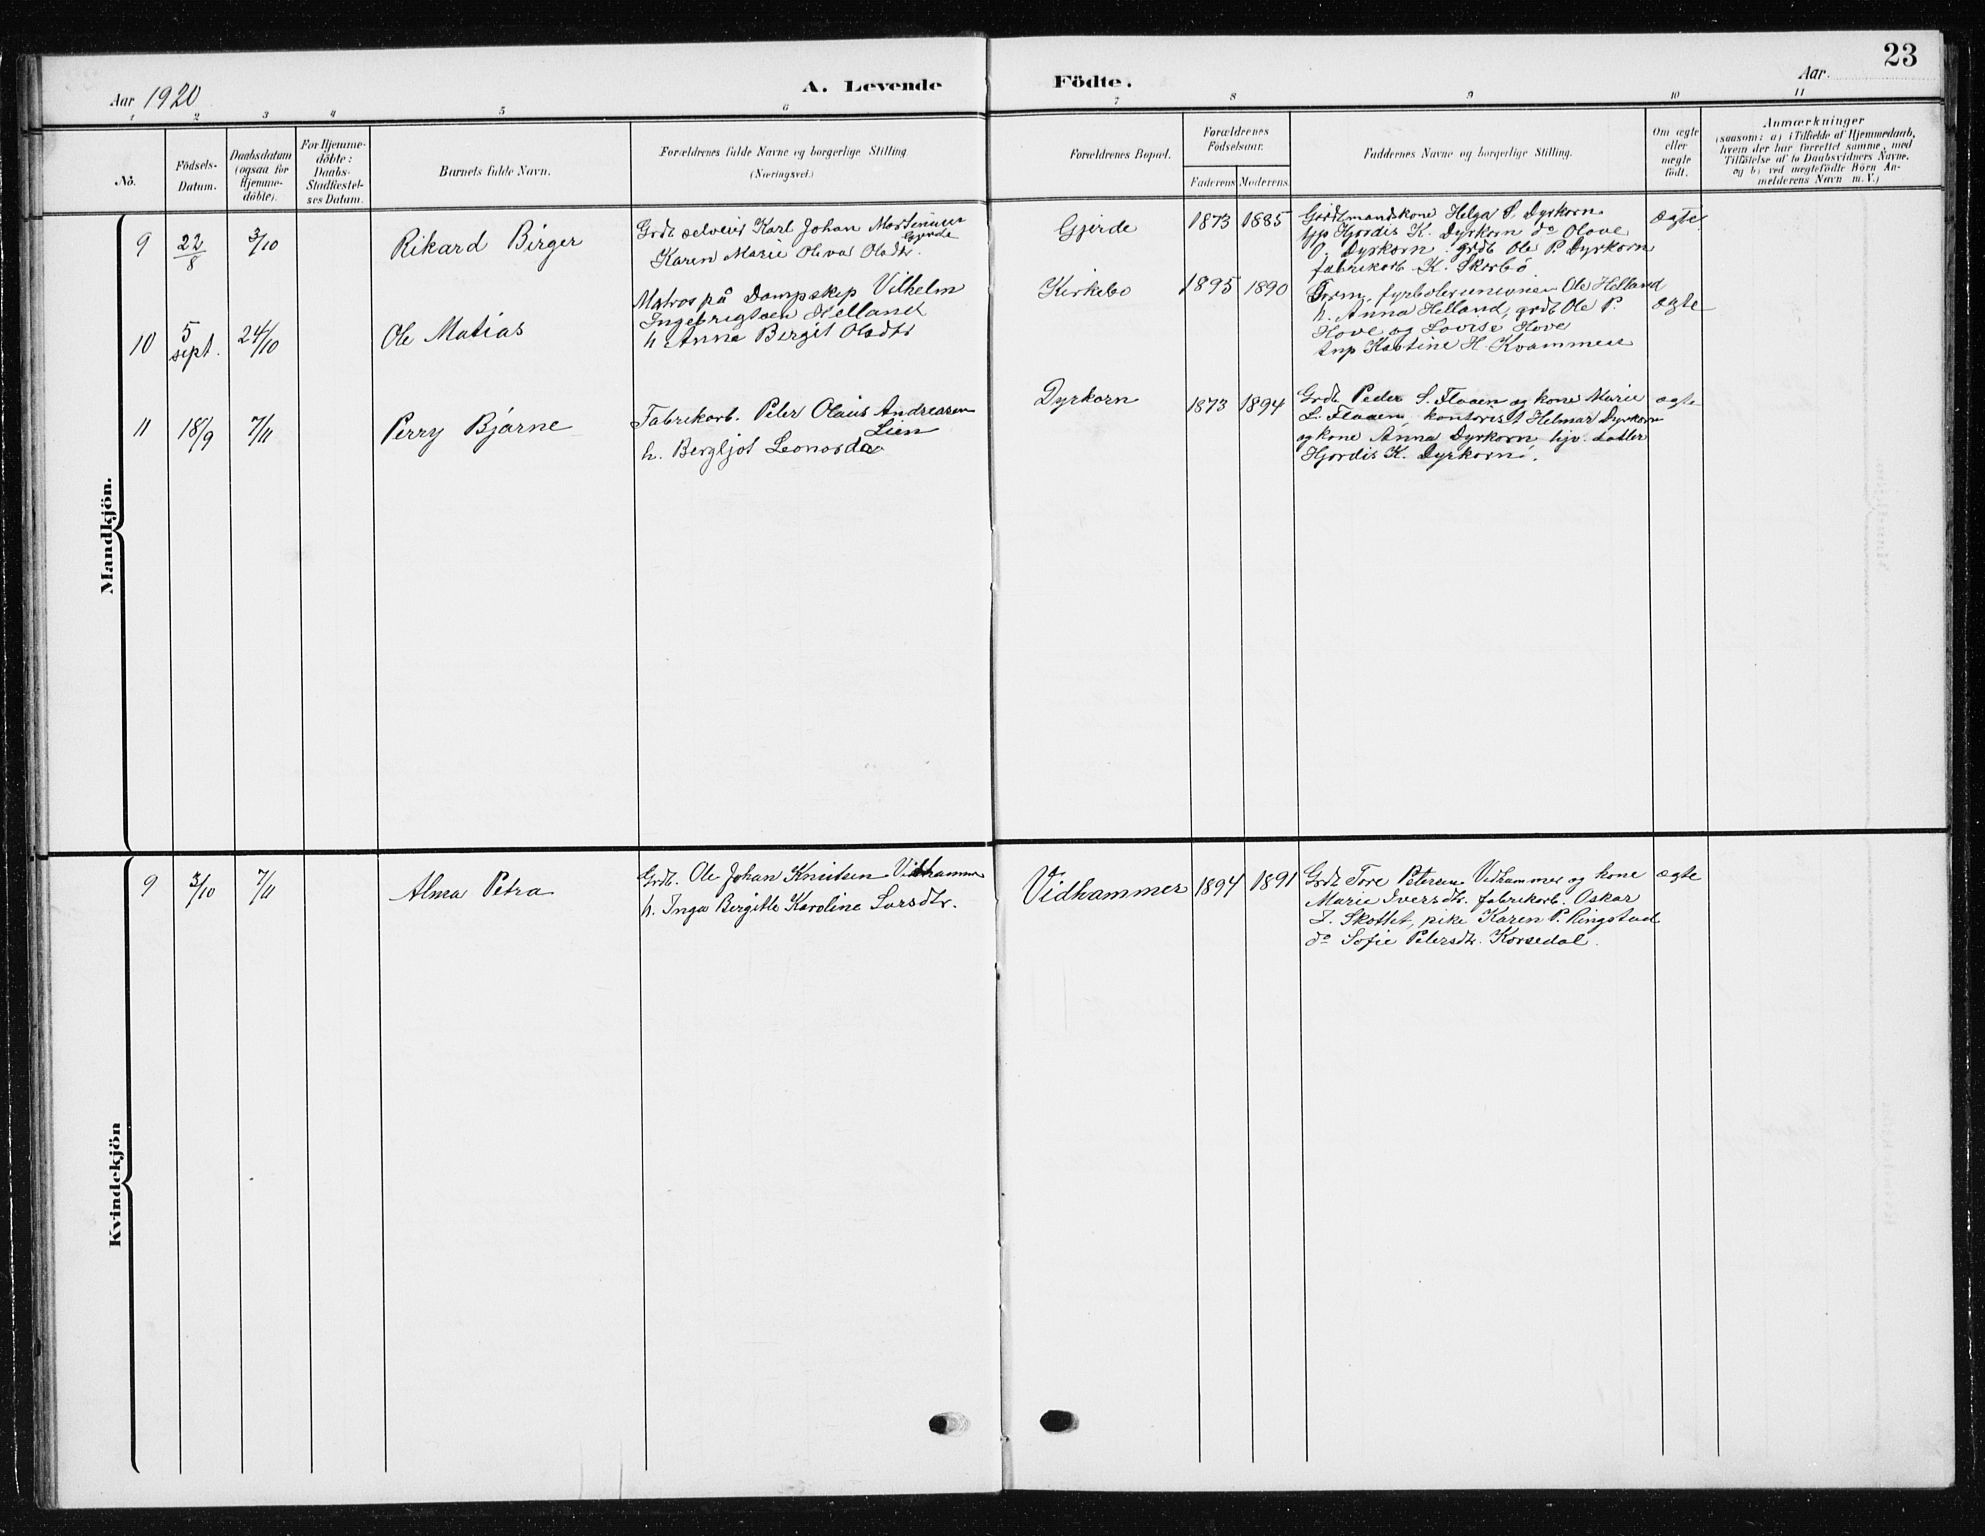 23
Aar 1920
A. Levende Födte.
Aar
1 2 3 4 5 6 7 8 9 10 11
No.
Födsels-
Datum.
Daabsdatum
(ogsaa for
Hjemme-
döbte).
For Hjemme-
döbte:
Daabs-
Stadfæstel-
ses Datum.
Barnets fulde Navn.
Forældrenes fulde Navne og borgerlige Stilling
(Næringsvei.)
Forældrenes Bopæl.
Forældrenes
Födselsaar.
Faderens Moderens
Faddernes Navne og borgerlige Stilling.
Om ægte
eller
uægte
födt.
Anmærkninger
(saasom: a) i Tilfælde af Hjemmedaab,
hvem der har forrettet samme, med
Tilföielse af to Daabsvidners Navne,
og b) ved uægtefödte Börn An-
melderens Navn m. V.)
Mandkjön.
9
22/8
3/10
Rikard Birger
Grdb selveier Karl Johan Martinusen
Gjerde
Karen Marie Oliva Olsdtr.
Gjerde
1873 1885
Gaardmandskone Helga S. Dyrkorn
Hjordis K. Dyrkorn do Olove
O. Dyrkorn grdb Ole P. Dyrkorn
fabrikarb K. Skorbø
ægte
10
5
sept.
24/10
Ole Matias
Matros på Dampskip Vilhelm
Ingebrigtsen Helland
h Anna Bergit Olsdtr
Kirkebø
1895 1890
Form. fyrbøterunionen Ole Helland
h. Anna Helland, grdb Ole P.
Hove og Lovise Hove
Kastine H. Kvammen
ægte
11
18/9
7/11
Perry Bjarne
Fabrikarb. Peter Olaus Andreassen
Lien
h. Bergljot Leonarda
Dyrkorn
1873 1894
Grdb Peder S. Flaaen og kone Marie
L. Flaaen, kontorist Helmar Dyrkorn
og kone Anna Dyrkorn hjv. datter
Hjordis K. Dyrkorn.
ægte
Kvindekjön
9
3/10
7/11
Alma Petra
Grdb. Ole Johan Knutsen Vidhammer
h. Inga Birgitte Karoline Larsdtr.
Vidhammer
1894 1891
Grdb Tore Petersen Vidhammer og kone
Marie Iversdtr. fabrikarb. Oskar
I. Skottet, pike Karen P. Ringstad
do Sofie Petersdtr. Korsedal.
ægte